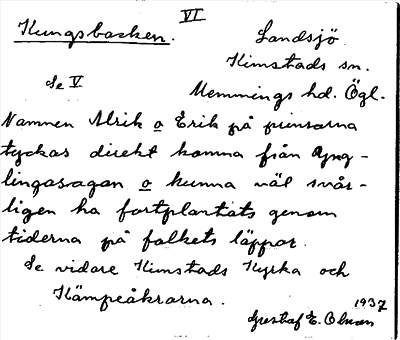 VI
Kungsbacken. Landsjö
Kimstads sn.
Se V Memmings hd. Ögl.
Namnen Alrik o Erik på prinsarna
tyckas direkt komma från Yng-
lingasagan o kunna väl svår-
ligen ha fortplantats genom
tiderna på folkets läppar.
Se vidare Kimstads Kyrka och
Kämpeåkrarna. 1937
Gustaf E. Olsson